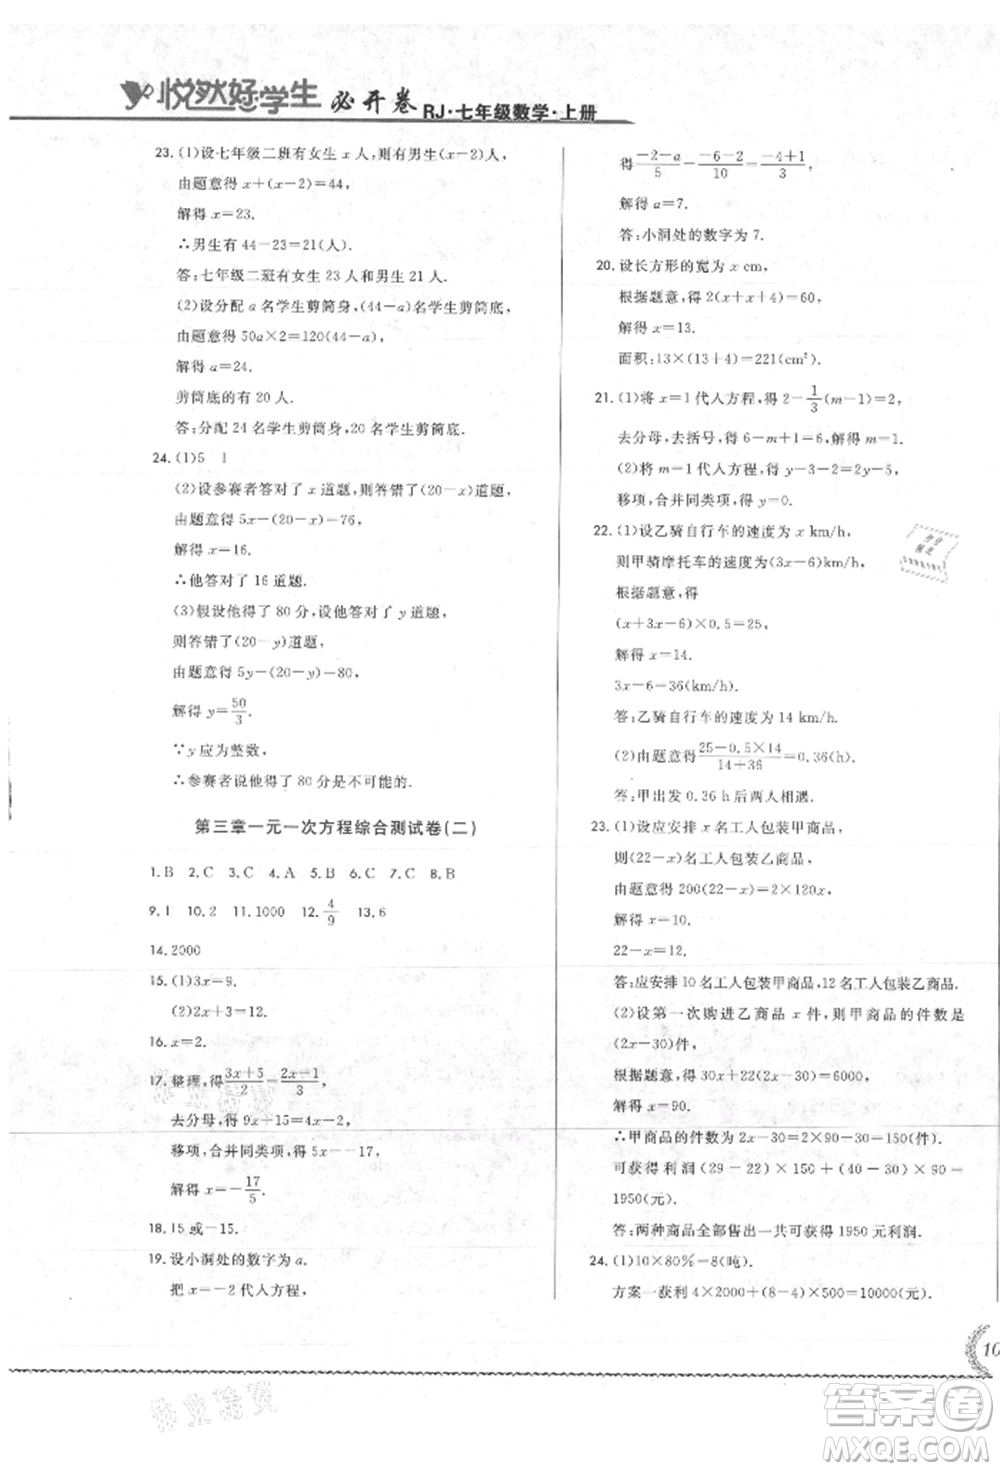 悦然好学生 必开卷 RJ·七年级数学·上册
23. (1)设七年级二班有女生 x 人,则有男生(x－2)人,
由题意得 x+(x－2)=44,
解得 x=23.
∴男生有 44－23=21(人).
答:七年级二班有女生 23 人和男生 21 人.
(2)设分配 a 名学生剪筒身,(44－a)名学生剪筒底,
由题意得 50a×2=120(44－a),
解得 a=24.
剪筒底的有 20 人.
答:分配 24 名学生剪筒身,20 名学生剪筒底.
24. (1)5 1
(2)设参赛者答对了 x 道题,则答错了(20－x)道题,
由题意得 5x－(20－x)=76,
解得 x=16.
∴他答对了 16 道题.
(3)假设他得了 80 分,设他答对了 y 道题,
则答错了(20－y)道题,
由题意得 5y－(20－y)=80,
解得 y=50/3.
∵y 应为整数,
∴参赛者说他得了 80 分是不可能的.
第三章一元一次方程综合测试卷(二)
1.B 2.C 3.C 4.A 5.B 6.C 7.C 8.B
9.1 10.2 11.1000 12.4/9 13.6
14.2000
15. (1)3x=9.
(2)2x+3=12.
16. x=2.
17. 整理,得 (3x+5)/2=(2x－1)/3,
去分母,得 9x+15=4x－2,
移项,合并同类项,得 5x=－17,
解得 x=－17/5.
18. 15 或－15.
19. 设小洞处的数字为 a.
把 x=－2 代人方程,
得 (－2－a)/5－(－6－2)/10=(－4+1)/3,
解得 a=7.
答:小洞处的数字为 7.
20. 设长方形的宽为 x cm,
根据题意,得 2(x+x+4)=60,
解得 x=13.
面积:13×(13+4)=221(cm²).
21. (1)将 x=1 代人方程,得 2－1/3(m－1)=2,
去分母、去括号,得 6－m+1=6,解得 m=1.
(2)将 m=1 代人方程,得 y－3－2=2y－5,
移项,合并同类项,得 y=0.
22. (1)设乙骑自行车的速度为 x km/h,
则甲骑摩托车的速度为(3x－6)km/h,
根据题意,得
(x+3x－6)×0.5=25,
解得 x=14.
3x－6=36(km/h).
答:乙骑自行车的速度为 14 km/h.
(2)由题意得 (25－0.5×14)/(14+36)=0.36(h).
答:甲出发 0.36 h 后两人相遇.
23. (1)设应安排 x 名工人包装甲商品,
则(22－x)名工人包装乙商品,
由题意得 200(22－x)=2×120x,
解得 x=10.
22－x=12.
答:应安排 10 名工人包装甲商品,12 名工人包装乙商品.
(2)设第一次购进乙商品 x 件,则甲商品的件数是
(2x－30)件,
根据题意,得 30x+22(2x－30)=6000,
解得 x=90.
∴甲商品的件数为 2x－30=2×90－30=150(件).
可获得利润(29－22)×150+(40－30)×90=
1950(元).
答:两种商品全部售出一共可获得 1950 元利润.
24. (1)10×80%=8(吨).
方案一获利 4×2000+(8－4)×500=10000(元).
10
答案卷
MXQE.COM